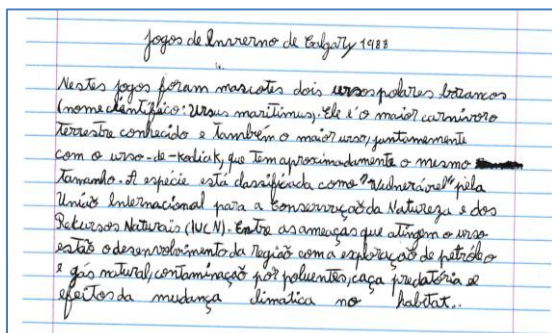 Jogos de Inverno de Calgary 1988
Nestes jogos foram mascotes dois ursos polares brancos
(nome científico: Ursus maritimus). Ele é o maior carnívoro
terrestre conhecido e também o maior urso, juntamemente
com o urso-de-kodiak, que tem aproximadamente o mesmo
tamanho. A espécie está classificada como "Vulnerável" pela
União Internacional para a Conservação da Natureza e dos
Rekursos Naturais (IUCN). Entre as ameaças que atingem o urso
estão o desenvolvimento da região com a exploração de petróleo
e gás natural, contaminação por poluentes, caça predatória e
efeitos da mudança climatica no habitat..